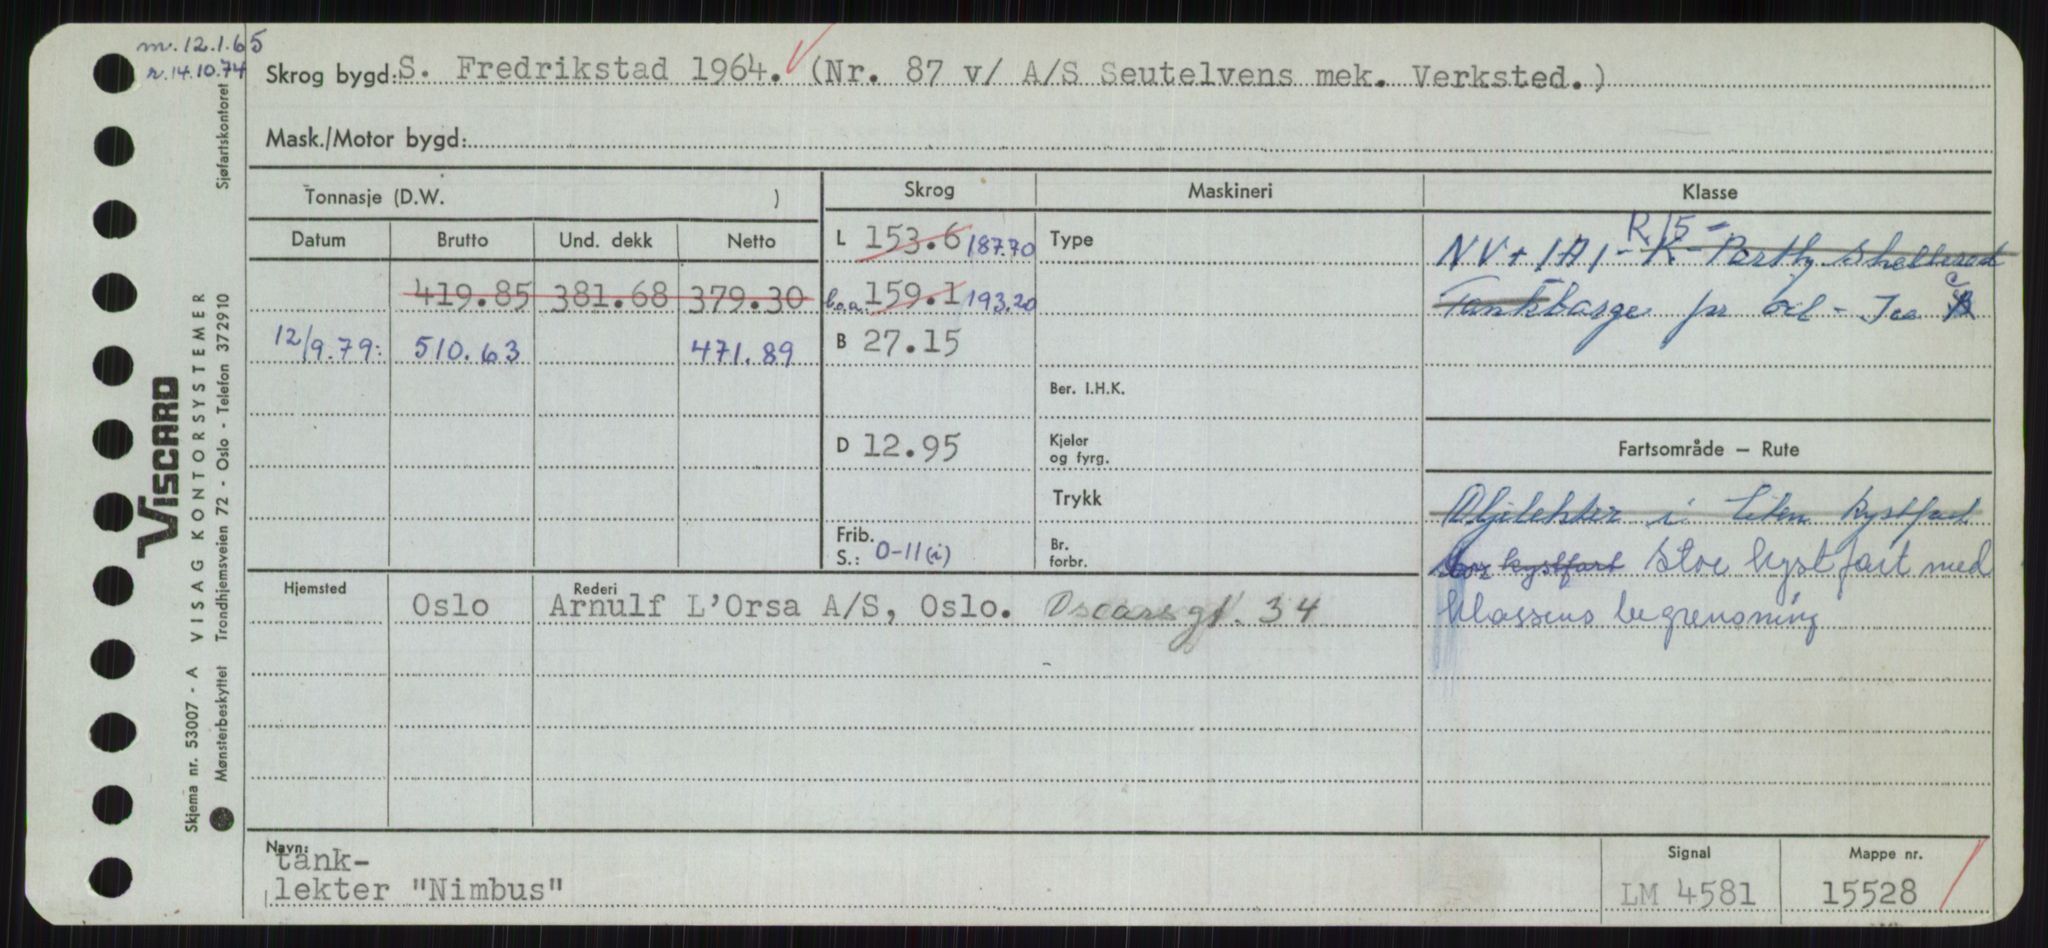 m. 12.1.65
r. 14.10.74
Skrog bygd: S. Fredrikstad 1964. (Nr. 87 v/ A/S Seutelvens mek. Verksted.)
Mask./Motor bygd:
Tonnasje (D.W. )
Skrog
Maskineri
Klasse
Datum
Brutto
Und. dekk
Netto
L 153.6 187.70
Type
R 15 -
NV + 1A1 - K - Partly Sheltered
419.85 381.68 379.30
b.a. 159.1 193.20
Tankbarge for oil - Ice C
12/9.79: 510.63 471.89
B 27.15
Ber. I.H.K.
D 12.95
Kjeler
og fyrg.
Fartsområde — Rute
Trykk
Oljelekter i liten kystfart
Frib.
S.: 0-11 (i)
Br.
forbr.
kystfart Stor kystfart med
Hjemsted
Oslo
Rederi
Arnulf L'Orsa A/S, Oslo. Oscarsgt. 34
klassens begrensning
Navn:
tank-
lekter "Nimbus"
Signal
LM 4581
Mappe nr.
15528
Sjøfartskontoret
VISCARD
VISAG KONTORSYSTEMER
Trondhjemsveien 72 - Oslo - Telefon 372910
Skjema nr. 53007 - A
Mønsterbeskyttet